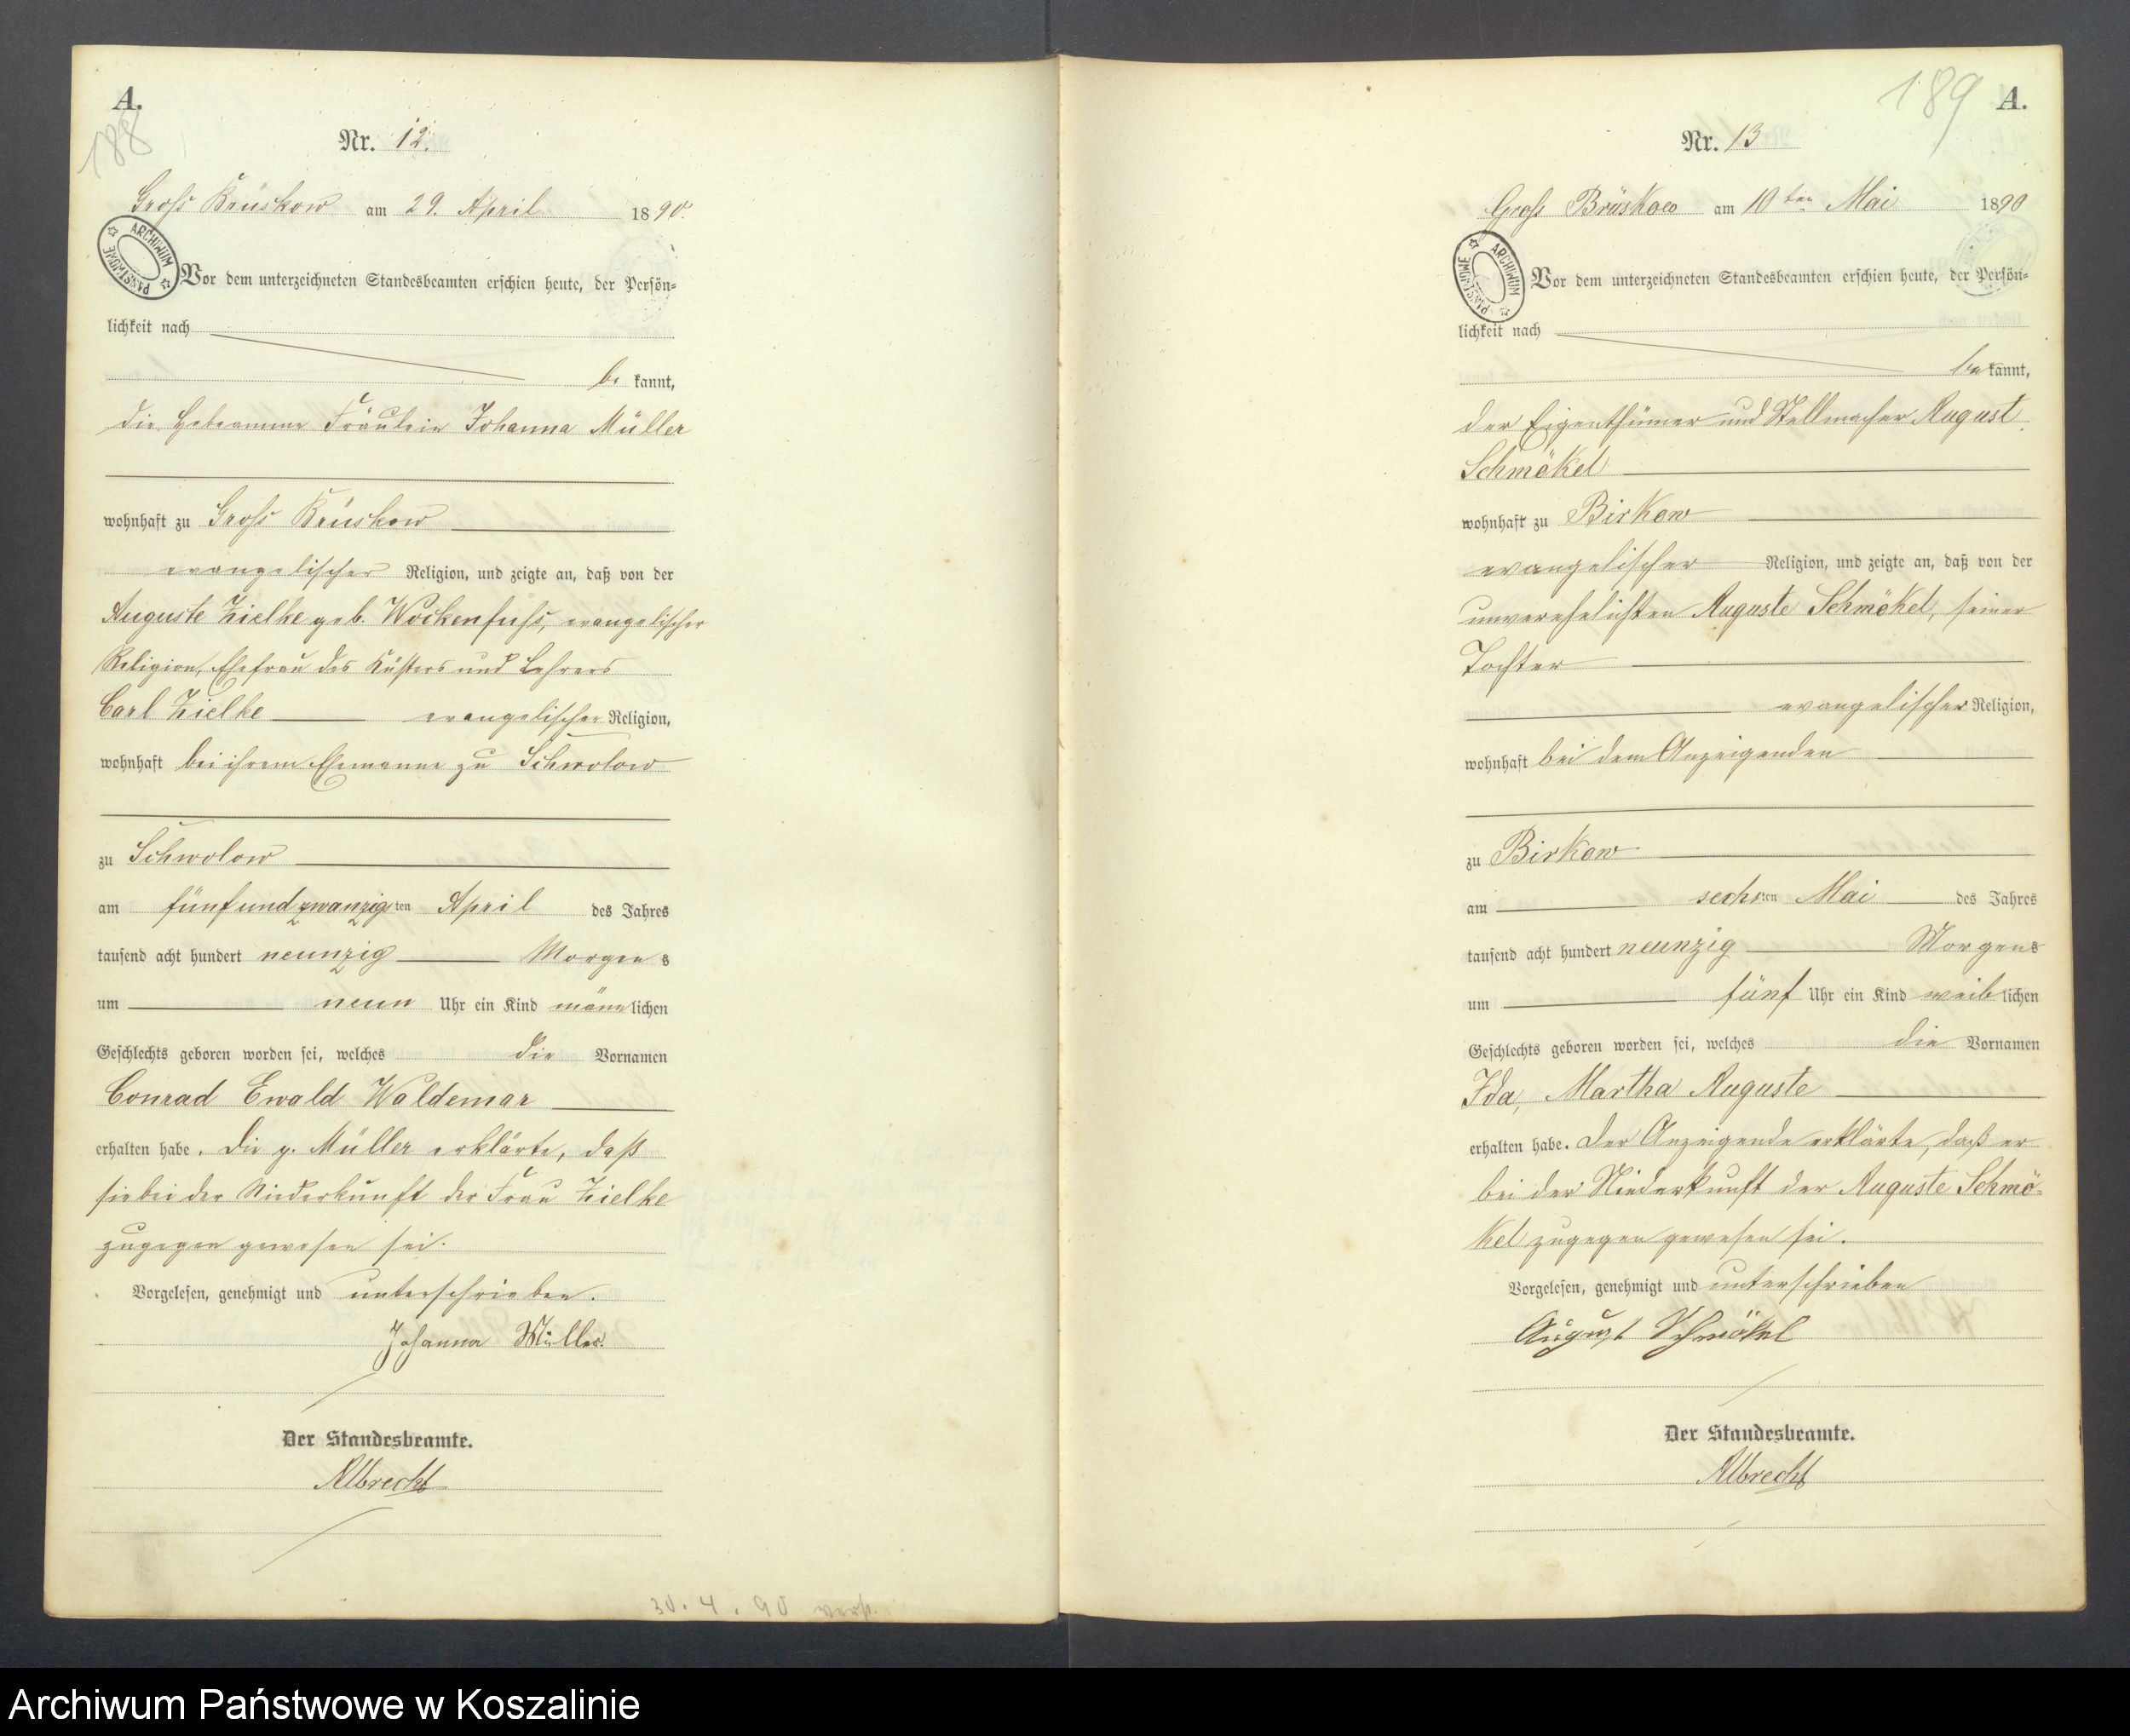 A.
188
Nr. 12.
Groß Brüskow am 29. April 1890.
ARCHIWUM PAŃSTWOWE
Vor dem unterzeichneten Standesbeamten erschien heute, der Persön-
lichkeit nach
be kannt,
die Hebeamme Fräulein Johanna Müller
wohnhaft zu Groß Brüskow
evangelischer Religion, und zeigte an, daß von der
Auguste Zielke geb. Wockenfuß, evangelischer
Religion, Ehefrau des Küsters und Lehrers
Carl Zielke evangelischer Religion,
wohnhaft bei ihrem Ehemanne zu Schwolow
zu Schwolow
am fünfundzwanzigten April des Jahres
tausend acht hundert neunzig Morgens
um neun Uhr ein Kind männlichen
Geschlechts geboren worden sei, welches die Vornamen
Conrad Ewald Waldemar
erhalten habe. Die p. Müller erklärte, daß
sie bei der Niederkunft der Frau Zielke
zugegen gewesen sei.
Vorgelesen, genehmigt und unterschrieben.
Johanna Müller.
Der Standesbeamte.
Albrecht
30.4.90
189 A.
Nr. 13
Groß Brüskow am 10ten Mai 1890
ARCHIWUM PAŃSTWOWE
Vor dem unterzeichneten Standesbeamten erschien heute, der Persön-
lichkeit nach
be kannt,
der Eigenthümer und Stellmacher August
Schmökel
wohnhaft zu Birkow
evangelischer Religion, und zeigte an, daß von der
unverehelichten Auguste Schmökel, seiner
Tochter
evangelischer Religion,
wohnhaft bei dem Anzeigenden
zu Birkow
am sechsten Mai des Jahres
tausend acht hundert neunzig Morgens
um fünf Uhr ein Kind weiblichen
Geschlechts geboren worden sei, welches die Vornamen
Ida, Martha Auguste
erhalten habe. Der Anzeigende erklärte, daß er
bei der Niederkunft der Auguste Schmö-
kel zugegen gewesen sei.
Vorgelesen, genehmigt und unterschrieben
August Schmökel
Der Standesbeamte.
Albrecht
Archiwum Państwowe w Koszalinie